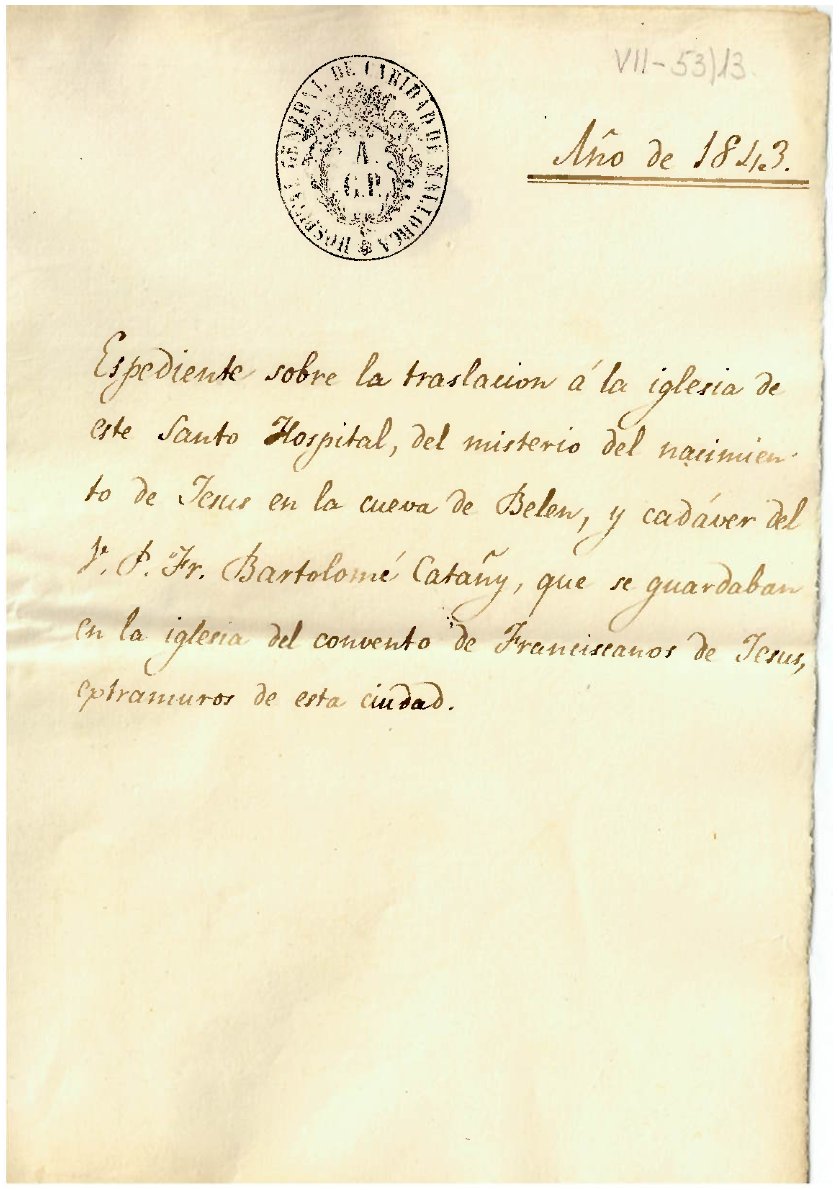 VII-53)13
HOSPITAL GENERAL DE CARIDAD DE MALLORCA
A
G.P.
Año de 1843.
Espediente sobre la traslacion á la iglesia de
este Santo Hospital, del misterio del nacimien-
to de Jesus en la cueva de Belen, y cadáver del
V. P. Fr. Bartolomé Catañy, que se guardaban
en la iglesia del convento de Franciscanos de Jesus,
extramuros de esta ciudad.